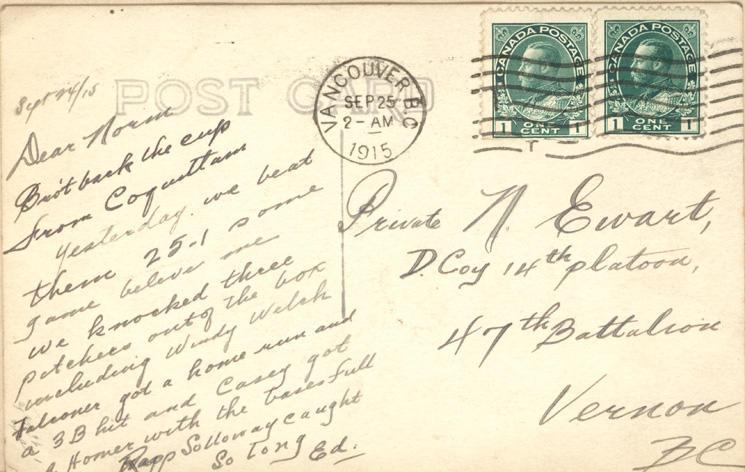 POST CARD
VANCOUVER, B.C.
SEP 25
2 - AM
1915
CANADA POSTAGE
1 ONE CENT 1
CANADA POSTAGE
1 ONE CENT 1
Sept 24/15
Dear Norm
Bro't back the cup
from Coquitlam
yesterday. we beat
them 25-1 some
game beleive me
we knocked three
pitchers out of the box
including Windy Welch
Falconer got a home run and
a 3B hit and Casey got
a Homer with the bases full
Rapp Solloway caught
So long Ed.
Private N. Ewart,
D. Coy 14th platoon,
47th Battalion
Vernon
BC